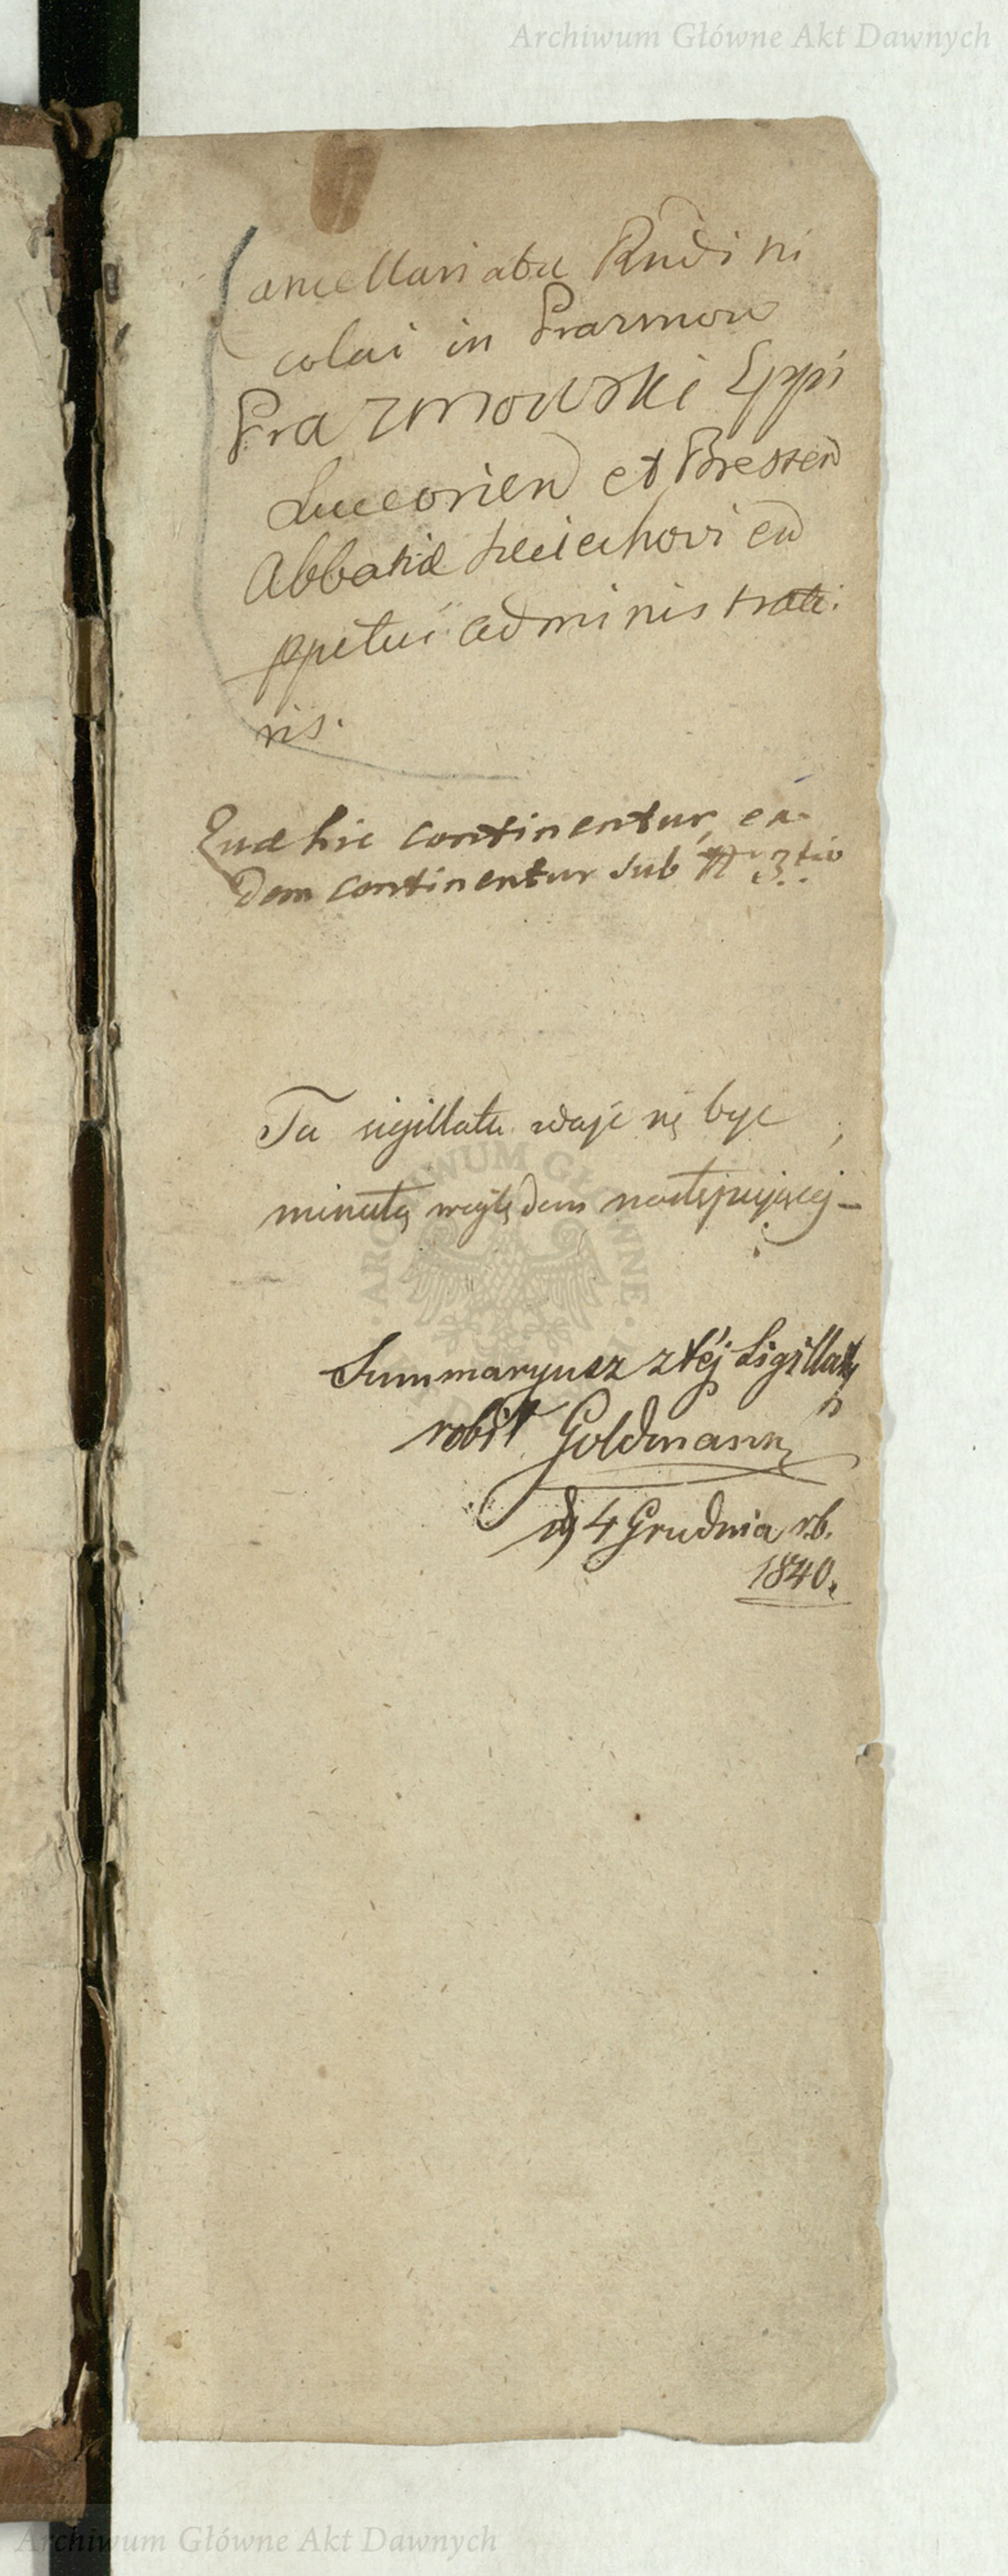 Archiwum Główne Akt Dawnych
Cancellariatu Rndi ni
colai in Prazmow
Prazmowski Eppi
Luceorien et Bresten
Abbatiæ Sieciechovien
ppetui administrato
ris.
Quæ hic continentur, ea-
dem continentur sub N 3tio
Ta sigillata zdaje się byc
minutą względem następującej
Summaryusz z téj Sigillaty
robił Goldmann
d 4 Grudnia r.b.
1840.
Archiwum Główne Akt Dawnych